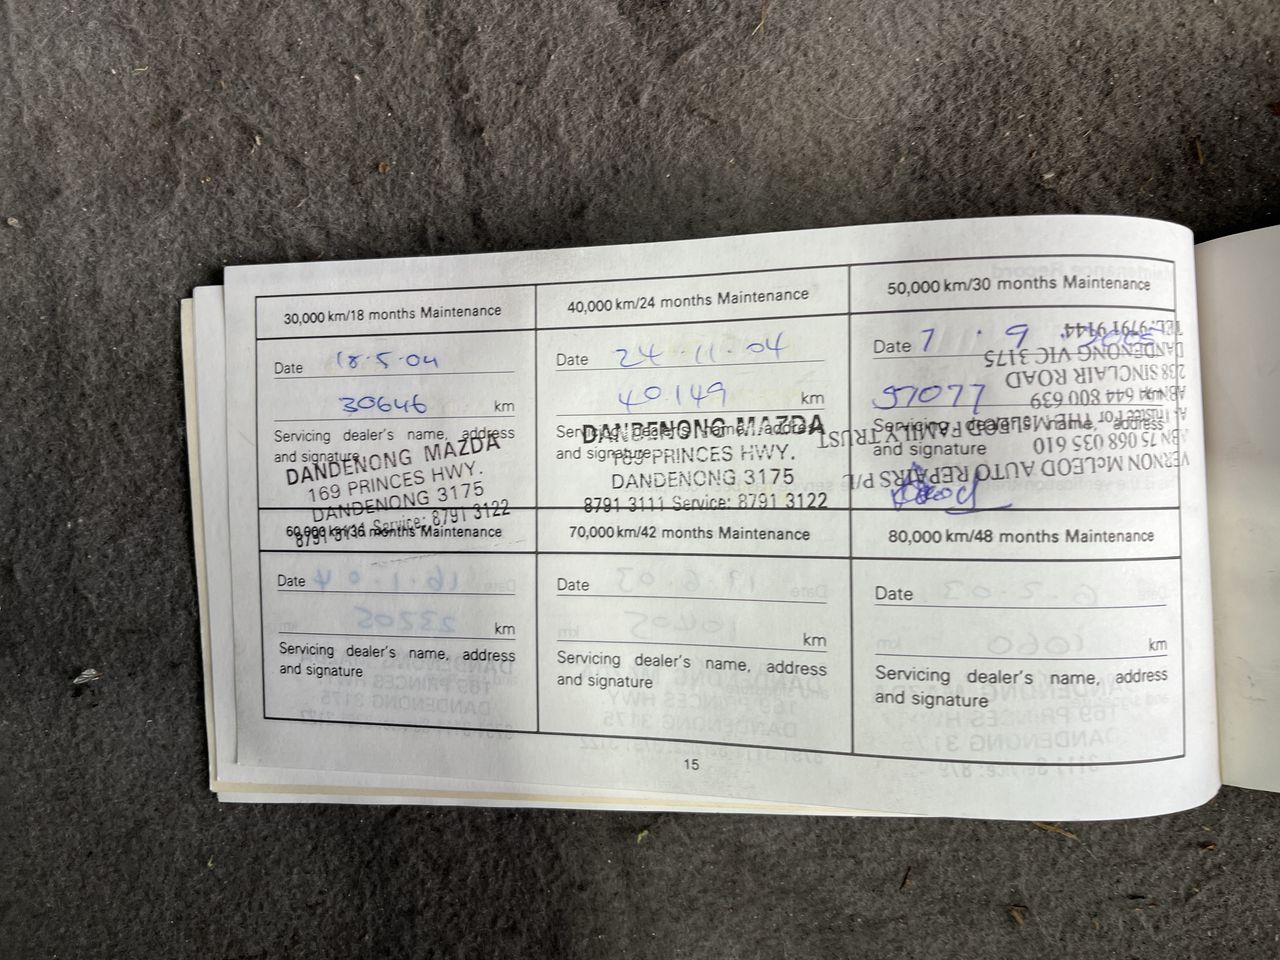 30,000 km/18 months Maintenance
Date 18·5·04
30646 km
Servicing dealer's name, address
and signature
DANDENONG MAZDA
169 PRINCES HWY.
DANDENONG 3175
8791 3111 Service: 8791 3122
40,000 km/24 months Maintenance
Date 24·11·04
40149 km
Servicing dealer's name, address
and signature
DANDENONG MAZDA
169 PRINCES HWY.
DANDENONG 3175
8791 3111 Service: 8791 3122
50,000 km/30 months Maintenance
Date 7·9·2005
57077
Servicing dealer's name, address
and signature
VERNON McLEOD AUTO REPAIRS P/L
ABN 75 068 035 610
As Trustee For THE McLEOD FAMILY TRUST
644 800 639
238 SINCLAIR ROAD
DANDENONG VIC 3175
TEL: 9791 9144
60,000 km/36 months Maintenance
Date
km
Servicing dealer's name, address
and signature
70,000 km/42 months Maintenance
Date
km
Servicing dealer's name, address
and signature
80,000 km/48 months Maintenance
Date
km
Servicing dealer's name, address
and signature
15